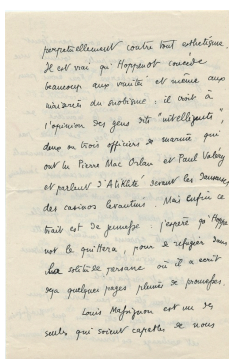 perpétuellement contre tout esthétique.
Il est vrai qu'Hoppenot concède
beaucoup aux vanités et même aux
du snobisme : il croit à
l'opinion des gens dits "intelligents",
deux ou trois officiers de marine qui
ont lu Pierre Mac Orlan et Paul Valéry
et parlent d' devant les danseuses
des casinos levantins. Mais enfin ce
trait est de jeunesse : j'espère qu'Hoppe
not le quittera, pour se réfugier dans
la solitude persane où il a écrit
déjà quelques pages pleines de promesses.
Louis Massignon est un des
seuls qui soient capables de nous